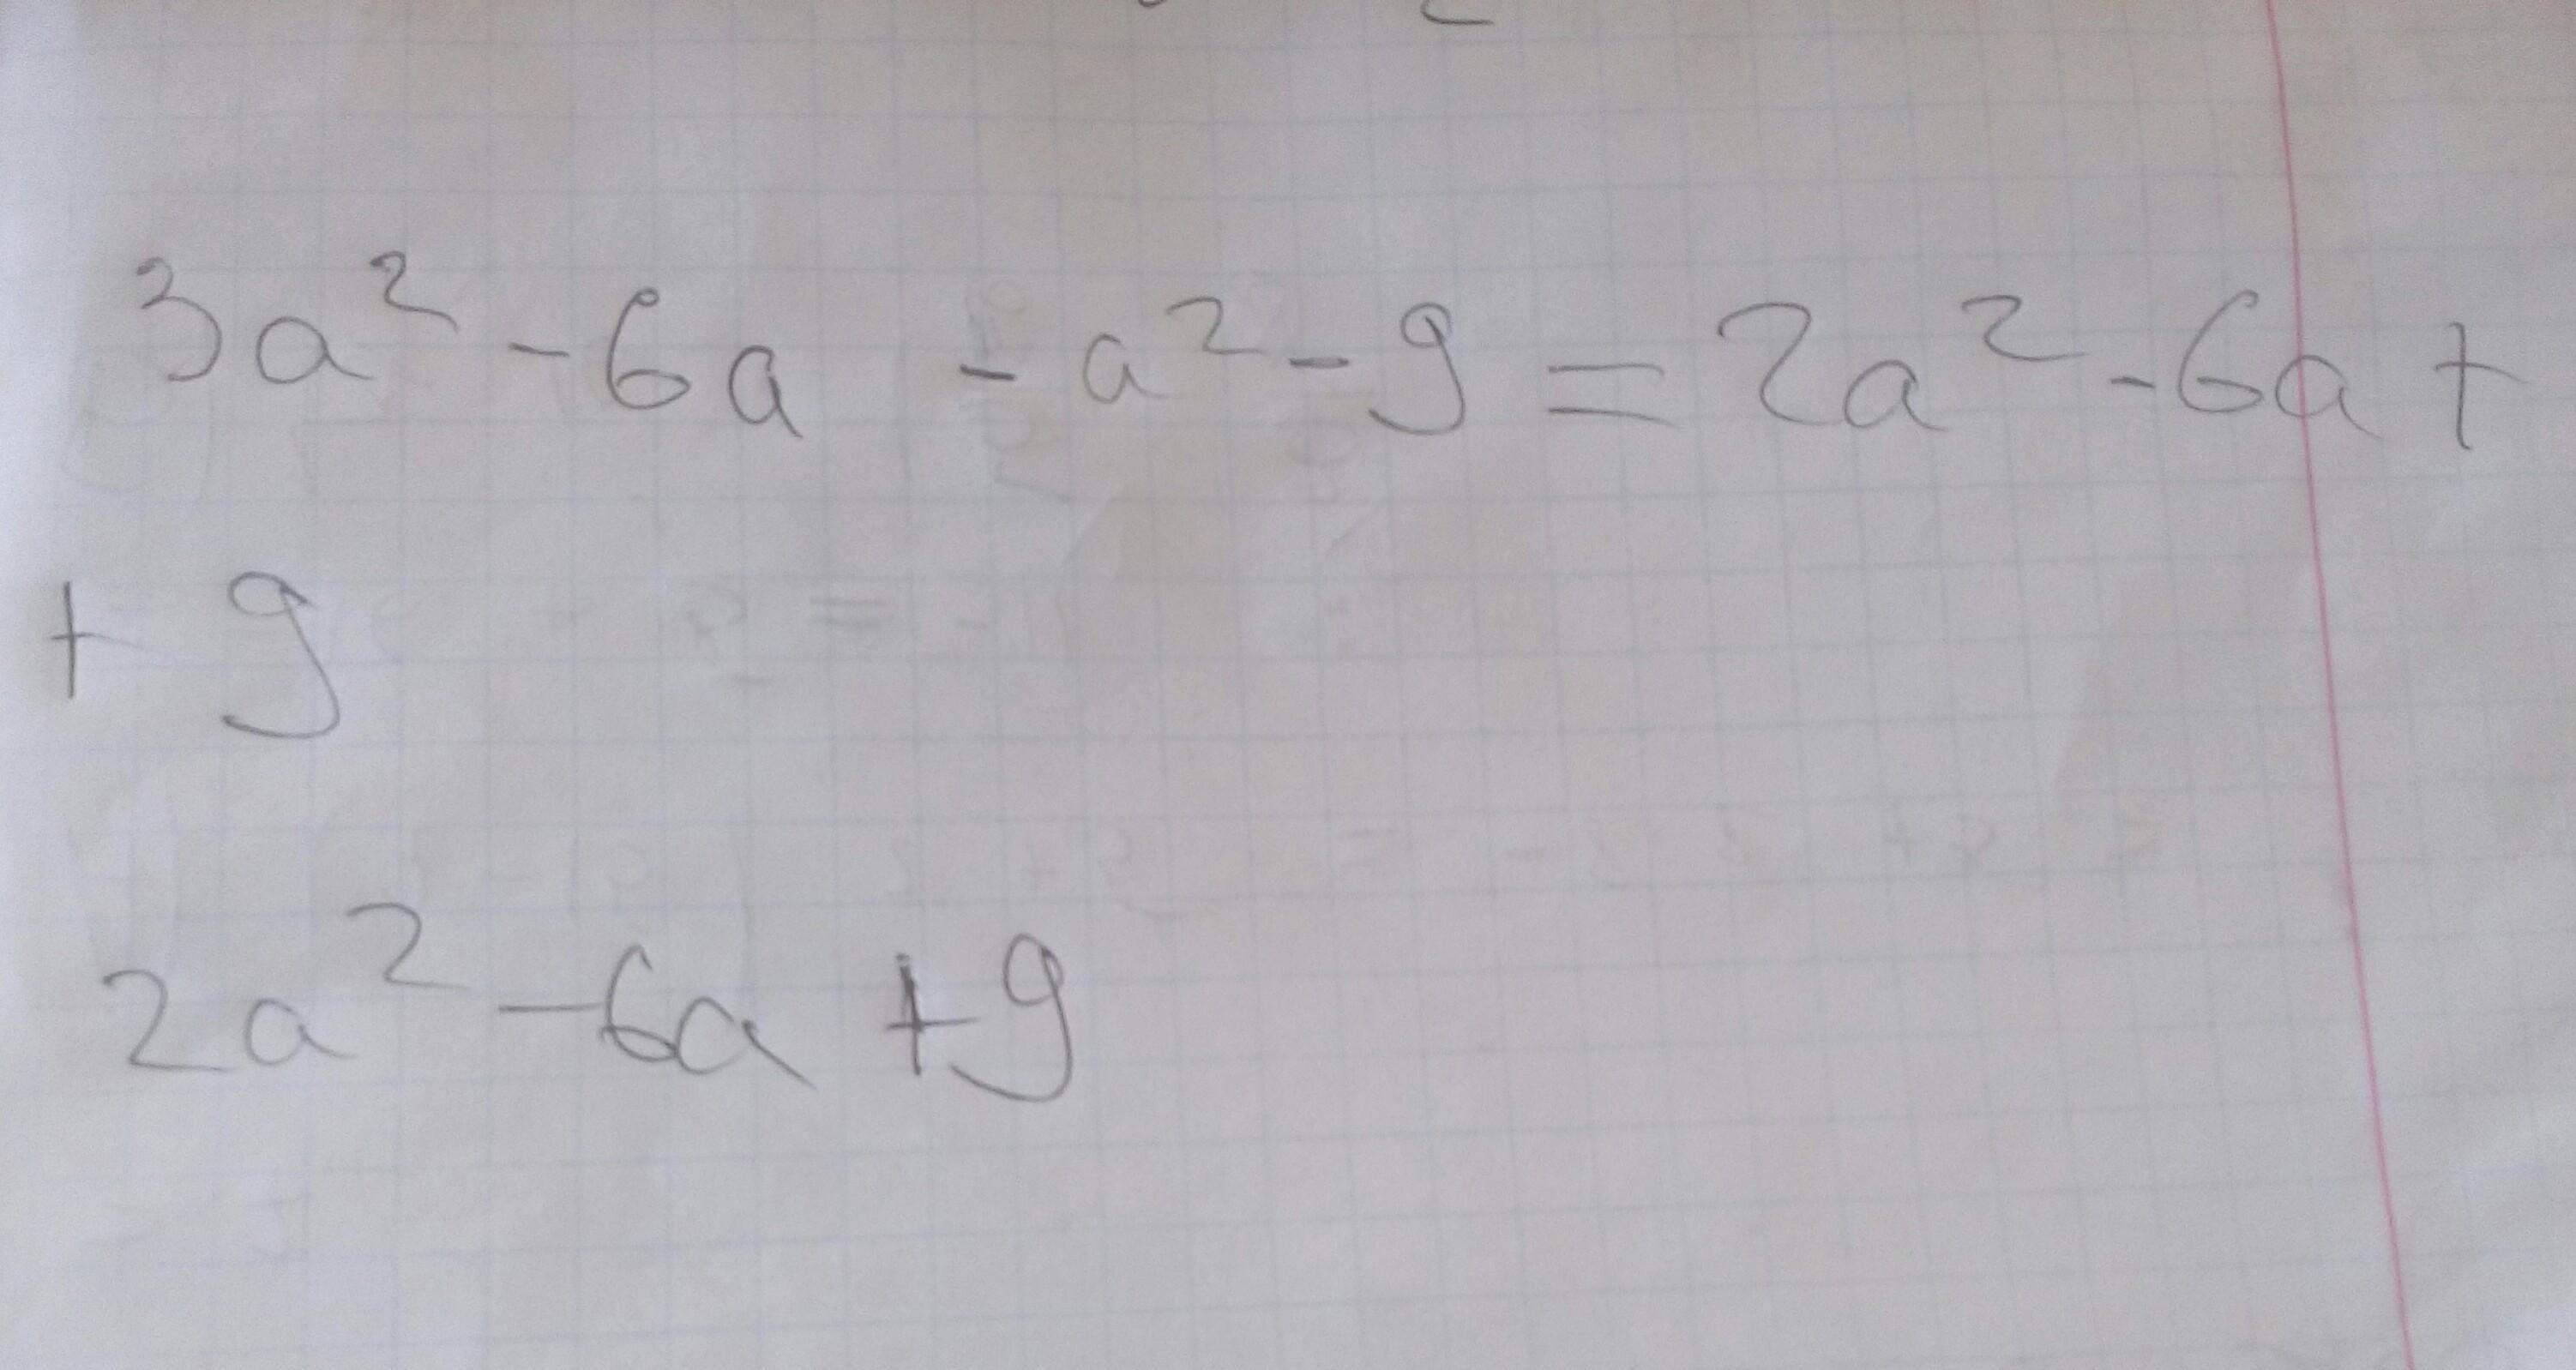 3a² - 6a - a² - 9 = 2a² - 6a +
+ 9
2a² - 6a + 9